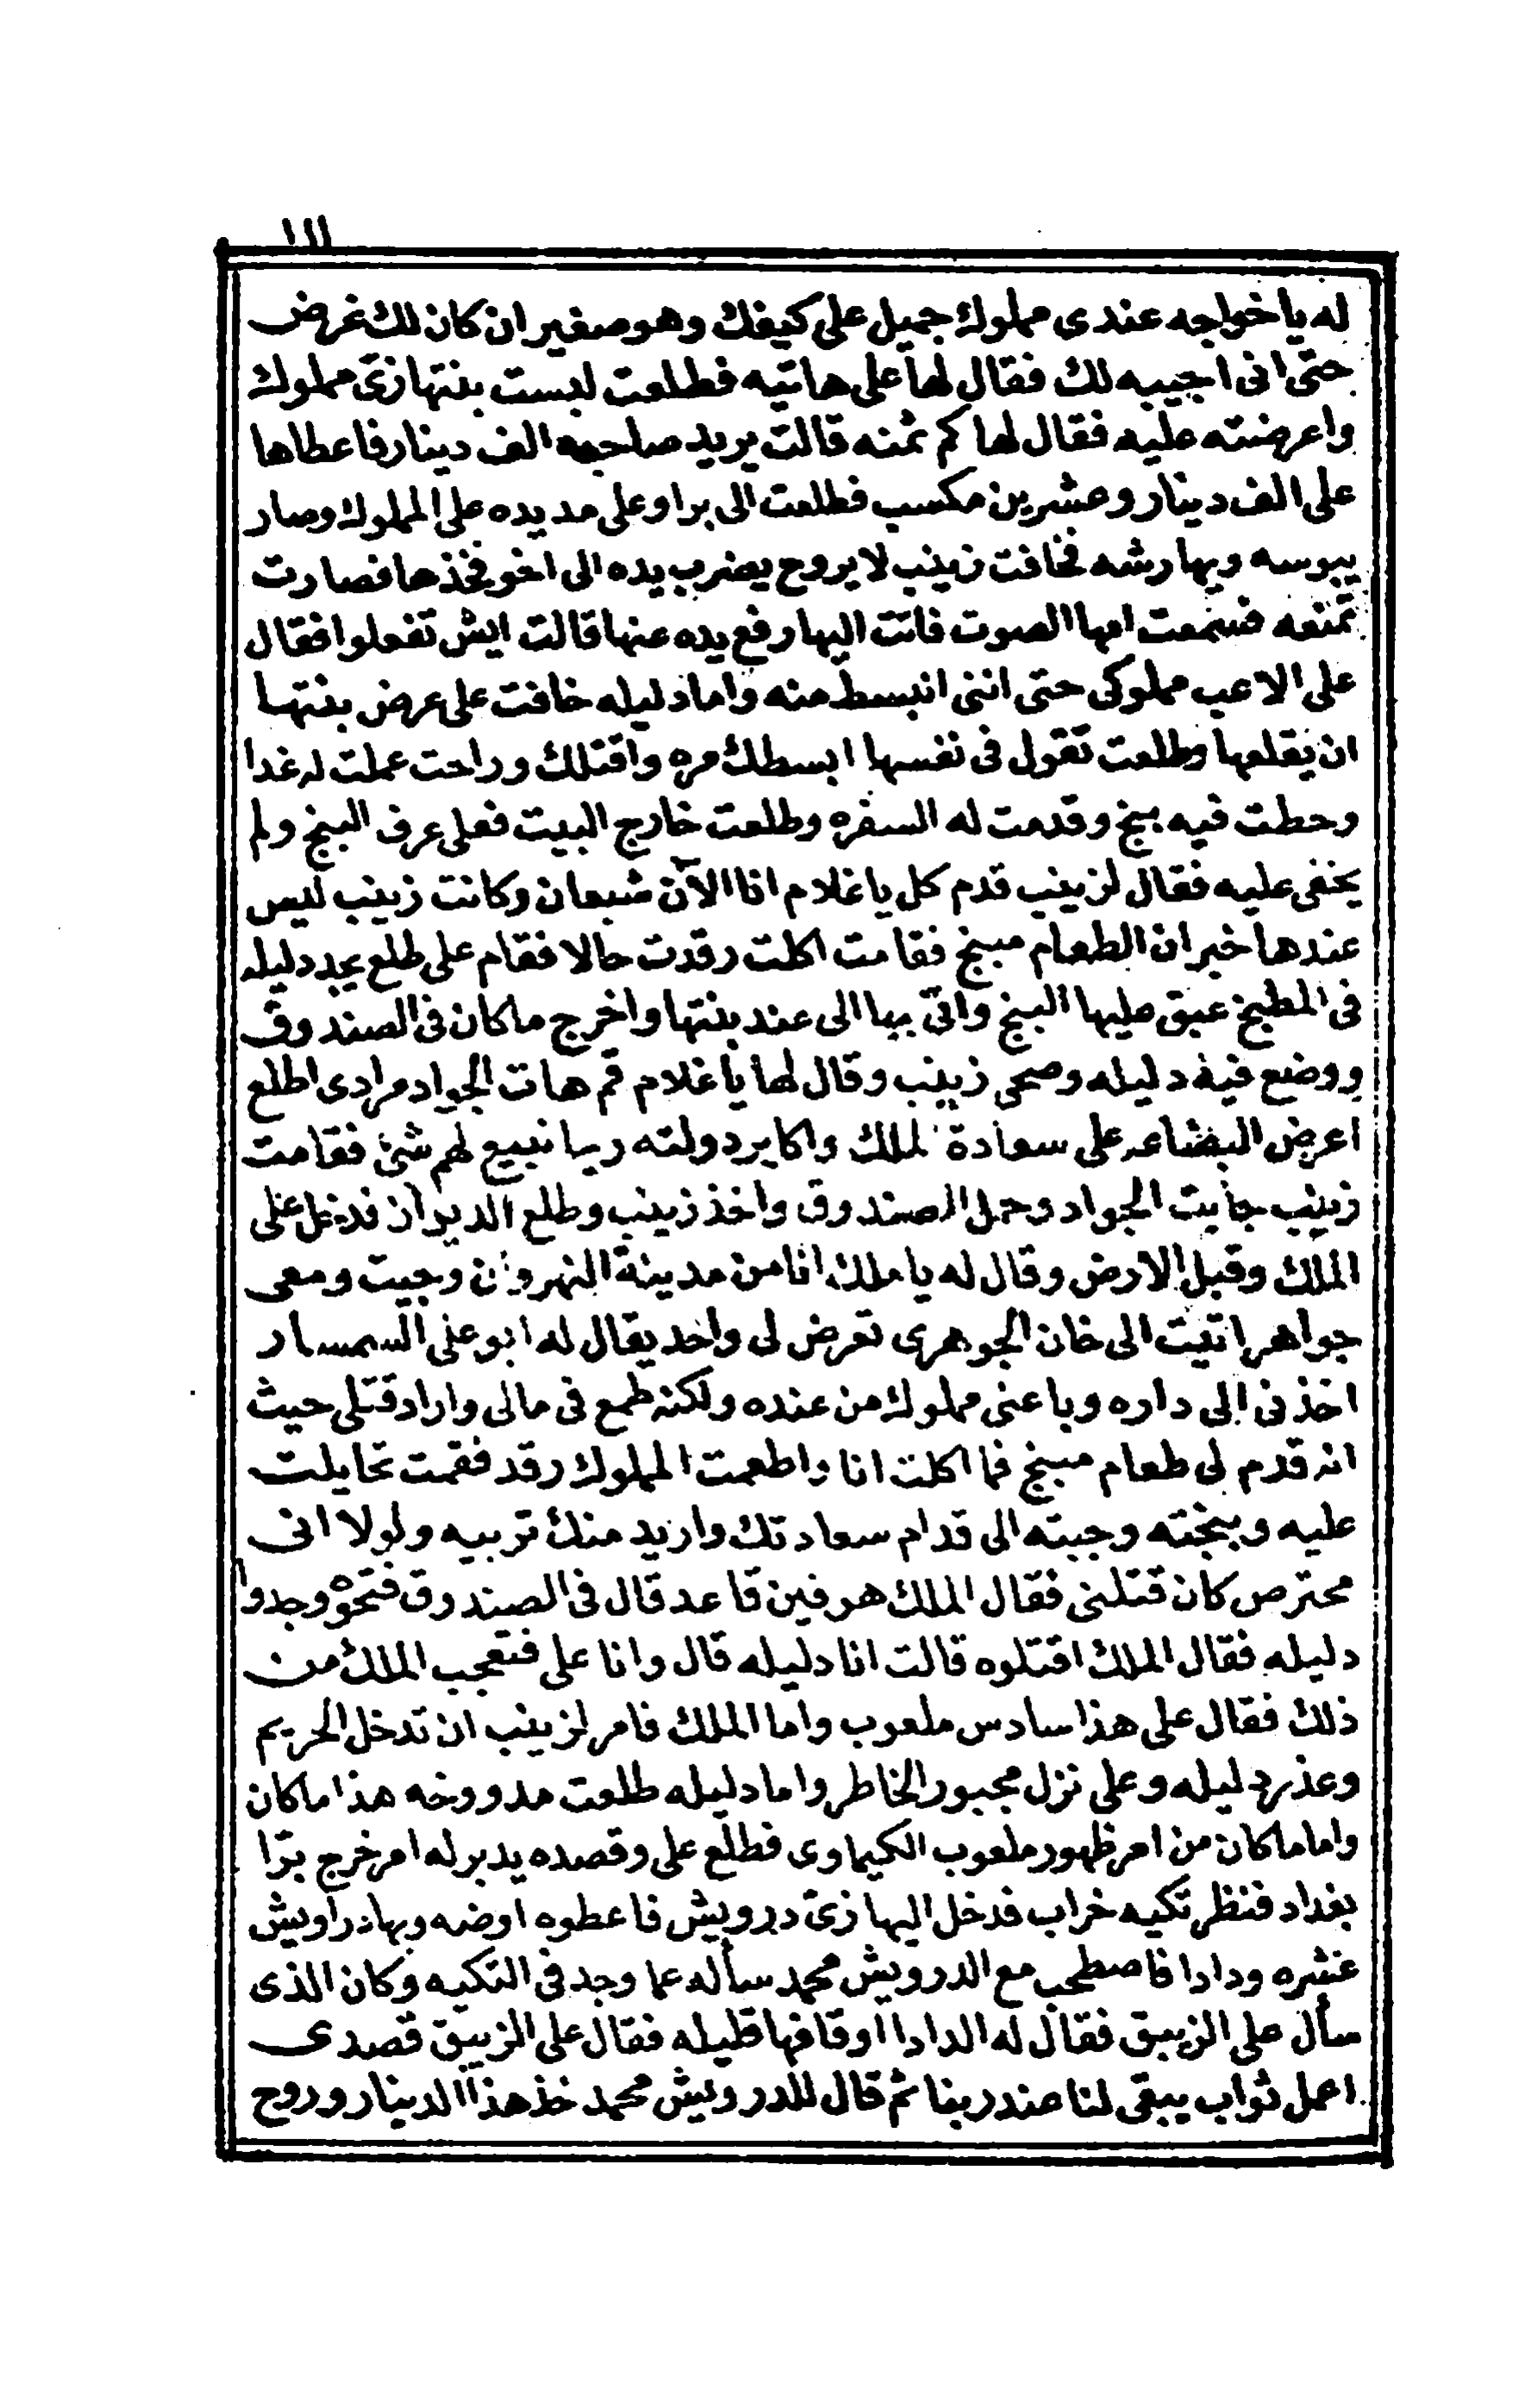 ١١١
له يا خواجه عندى مملوك جميل على كيفك وهو صغير ان كان لك غرض
حتى انى اجيبه لك فقال لها على هاتيه فطلعت لبست بنتها زى مملوك
واعرضته عليه فقال لها كم ثمنه قالت يريد صاحبه الف دينار فاعطاها
على الف دينار وعشرين مكسب فطلعت الى برا وعلى مد يده على المملوك وصار
يبوسه ويهارشه فخافت زينب لا يروح يضرب يده الى اخو فخذها فصارت
تمنعه فسمعت امها الصوت فاتت اليها رفع يده عنها قالت ايش تفعلوا فقال
على الاعب مملوكى حتى اننى انبسط منه واما دليله خافت على عرض بنتها
ان يقلعها وطلعت تقول فى نفسها ابسطك مره واقتلك وراحت عملت له غدا
وحطت فيه بنج وقدمت له السفره وطلعت خارج البيت فعلى عرف البنج ولم
يخفى عليه فقال لزينب قدم كل يا غلام انا الآن شبعان وكانت زينب ليس
عندها خبر ان الطعام مبنج فقامت اكلت رقدت حالا فقام على طلع يجد دليله
فى المطبخ عبق عليها البنج واتى بها الى عند بنتها واخرج ما كان فى الصندوق
ووضع فيه دليله وصحى زينب وقال لها يا غلام قم هات الجواد مرادى اطلع
اعرض البضاعه على سعادة الملك واكابر دولته ربما نبيع لهم شئ فقامت
زينب جابت الجواد وحمل الصندوق واخذ زينب وطلع الديوان فدخل على
الملك وقبل الارض وقال له يا ملك انا من مدينة النهروان وجيت ومعى
جواهر اتيت الى خان الجوهرى تعرض لى واحد يقال له ابو على السمسار
اخذنى الى داره وباعنى مملوك من عنده ولكنه طمع فى مالى واراد قتلى حيث
انه قدم لى طعام مبنج فما اكلت انا واطعمت المملوك رقد فقمت تحايلت
عليه وبنجته وجبته الى قدام سعادتك واريد منك تربيه ولولا انى
محترص كان قتلنى فقال الملك هو فين قاعد قال فى الصندوق فتحوه وجدوا
دليله فقال الملك اقتلوه قالت انا دليله قال وانا على فتعجب الملك من
ذلك فقال على هذا سادس ملعوب واما الملك فامر لزينب ان تدخل الحريم
وعذر دليله وعلى نزل مجبور الخاطر واما دليله طلعت مدووخه هذا ما كان
واما ما كان من امر ظهور ملعوب الكيماوى فطلع على وقصده يدبر له امر خرج برّا
بغداد فنظر تكيه خراب فدخل اليها زى درويش فاعطوه اوضه وبها دراويش
عشره ودادا فاصطحب مع الدرويش محمد سأله عما وجد فى التكيه وكان الذى
سأل على الزيبق فقال له الدادا اوقافها قليله فقال على الزيبق قصدى
اعمل ثواب يبقى لنا عند ربنا ثم قال للدرويش محمد خذ هذا الدينار وروح